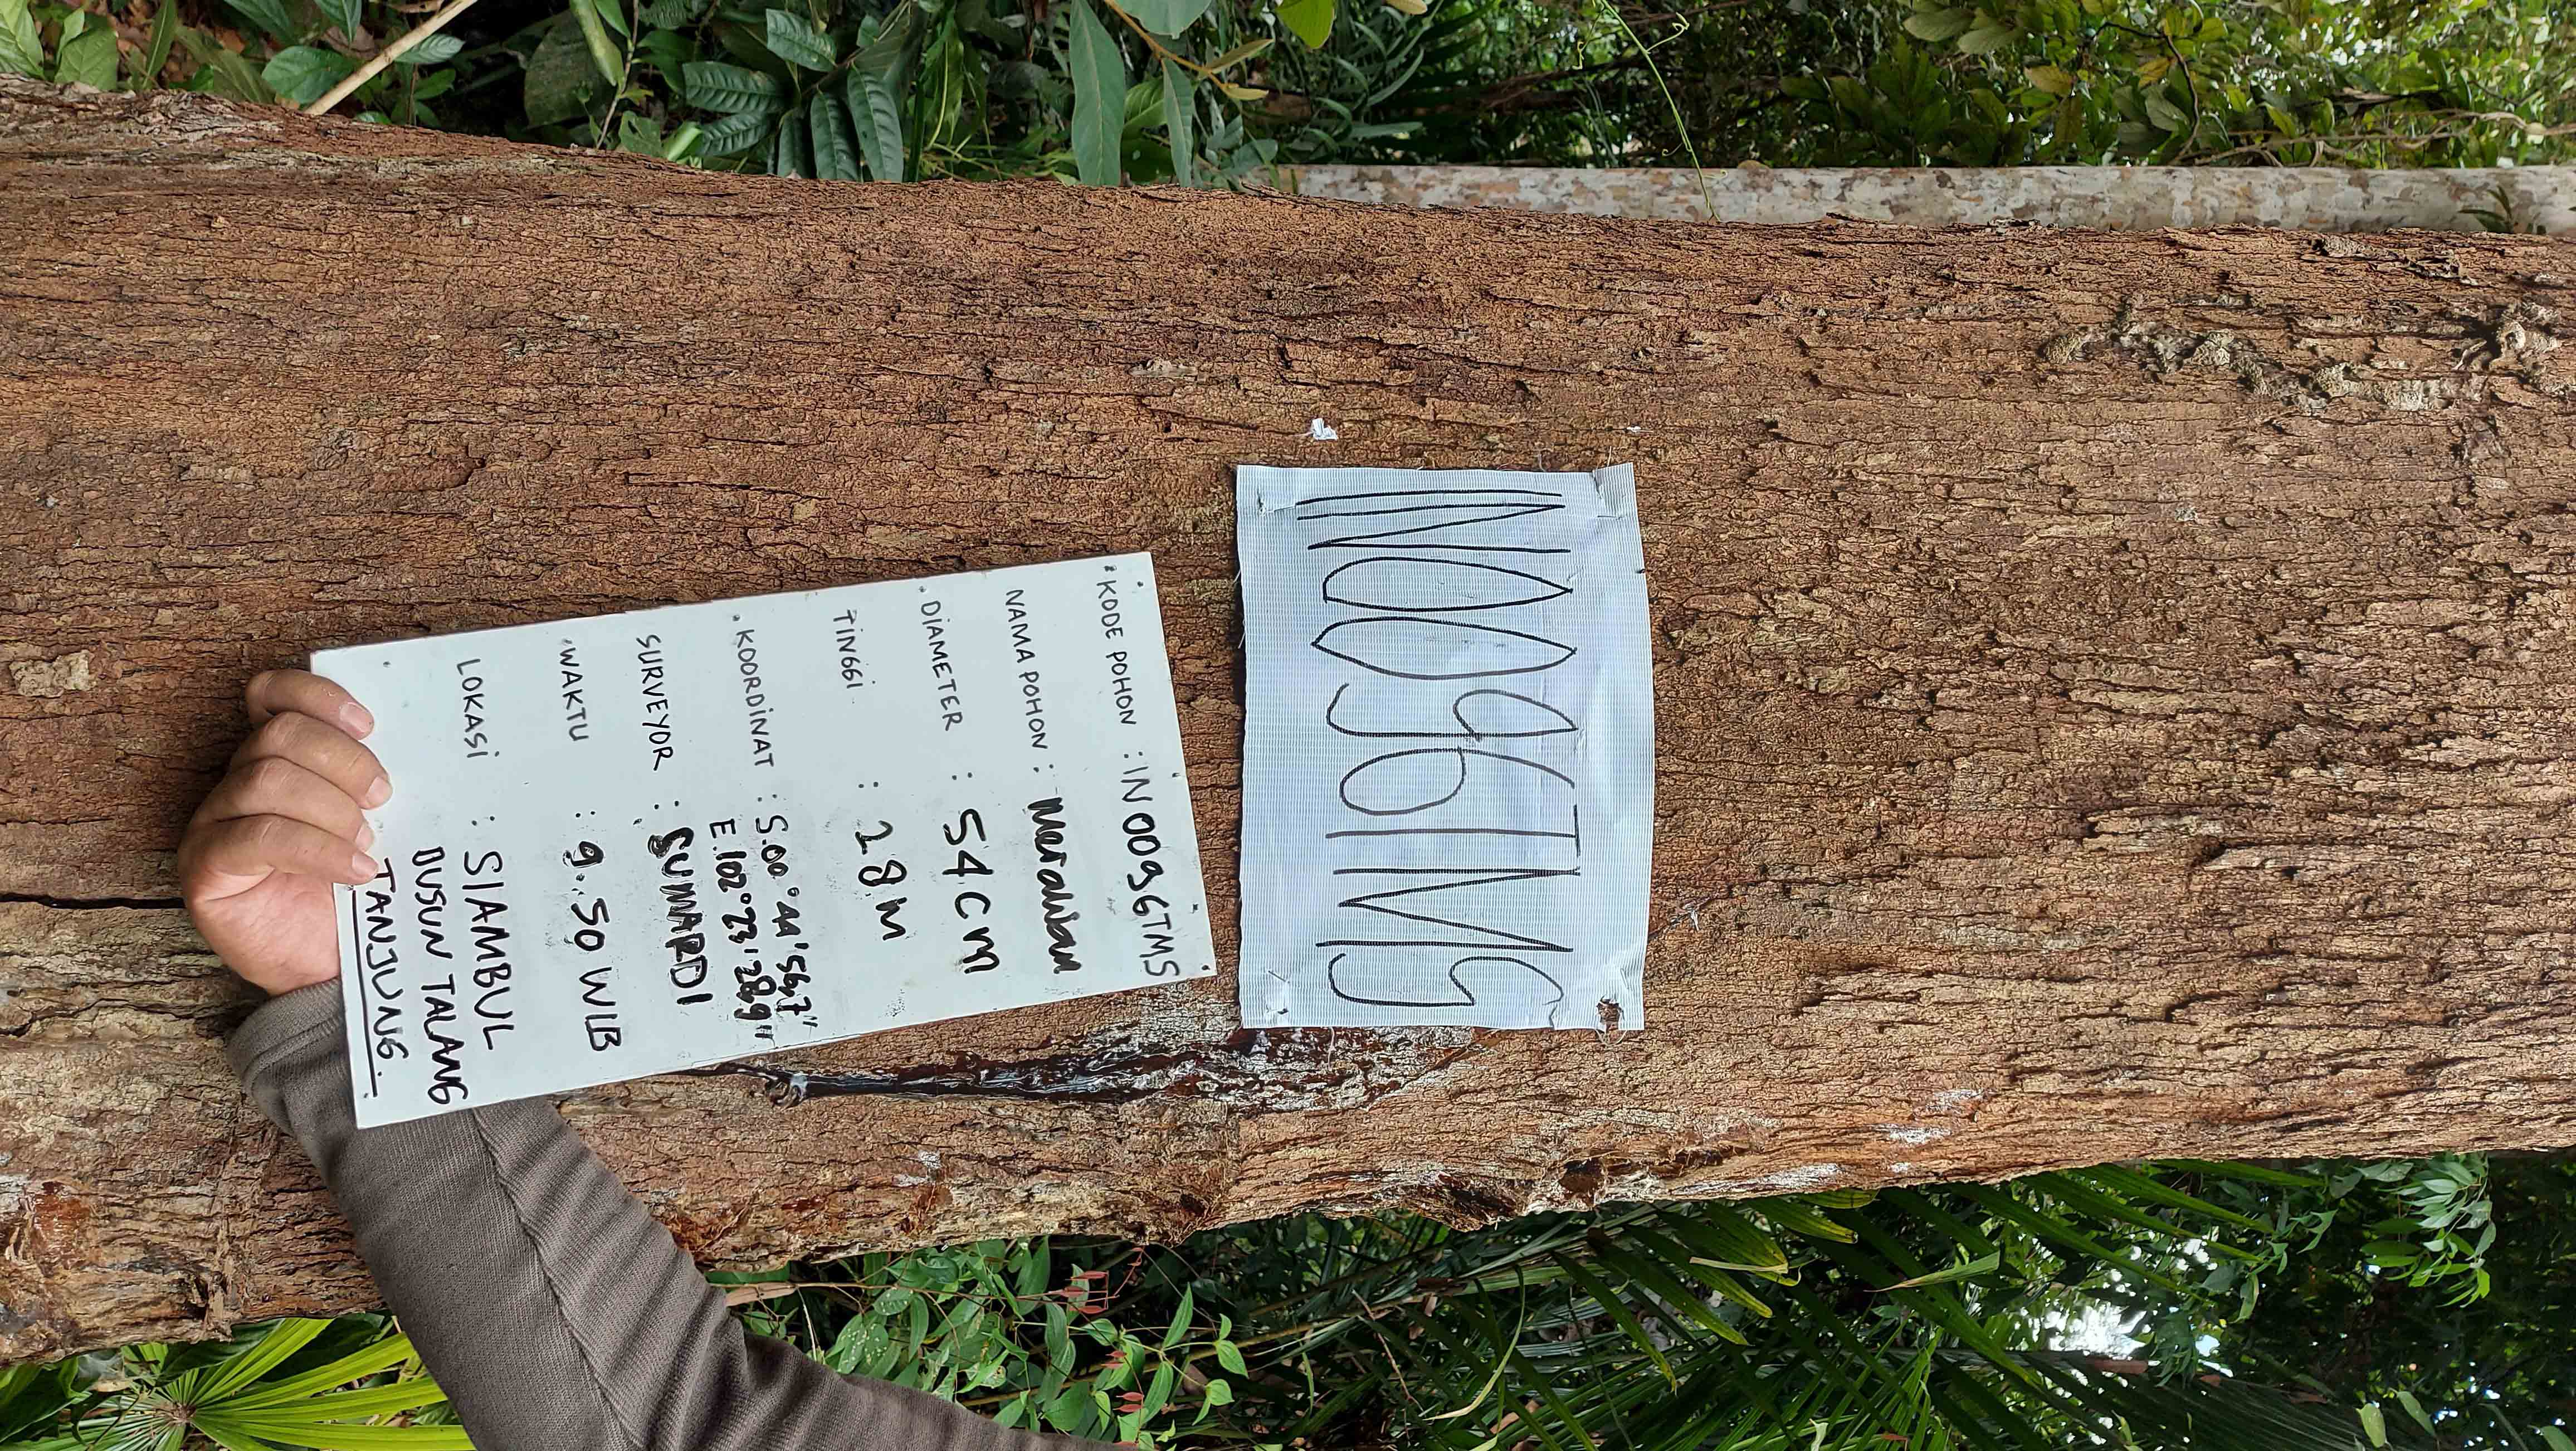 IN0096TMS
KODE POHON : IN0096TMS
NAMA POHON : Merahan
DIAMETER : 54 cm
TINGGI : 28 m
KOORDINAT : S.00°44'56,7"
E.102°23'28,9"
SURVEYOR : SUMARDI
WAKTU : 9.50 WIB
LOKASI : SIAMBUL
DUSUN TALANG
TANJUNG.